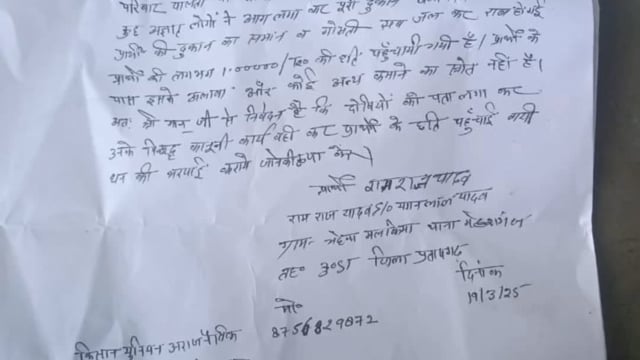 परिवार पालता
कुछ अज्ञात लोगों ने आग लगा कर पूरी दुकान
प्रार्थी की दुकान का समान व गोमती सब जल कर राख हो गई
प्रार्थी की लगभग 1.00000/ रु० की क्षति पहुँचायी गयी है। प्रार्थी के
पास इसके अलावा और कोई अन्य कमाने का स्रोत नहीं है।
अतः श्री मान् जी से निवेदन है कि दोषियों की पता लगा कर
उनके विरुद्ध कानूनी कार्यवाही कर प्रार्थी के क्षति पहुँचाई गयी
धन की भरपाई कराने की कृपा करें।
प्रार्थी रामराज यादव
राम राज यादव S/O लाल यादव
ग्राम- थाना
तह० जिला प्रतापगढ़
दिनांक
19/3/25
मो०
8756829872
किसान यूनियन अराजनैतिक